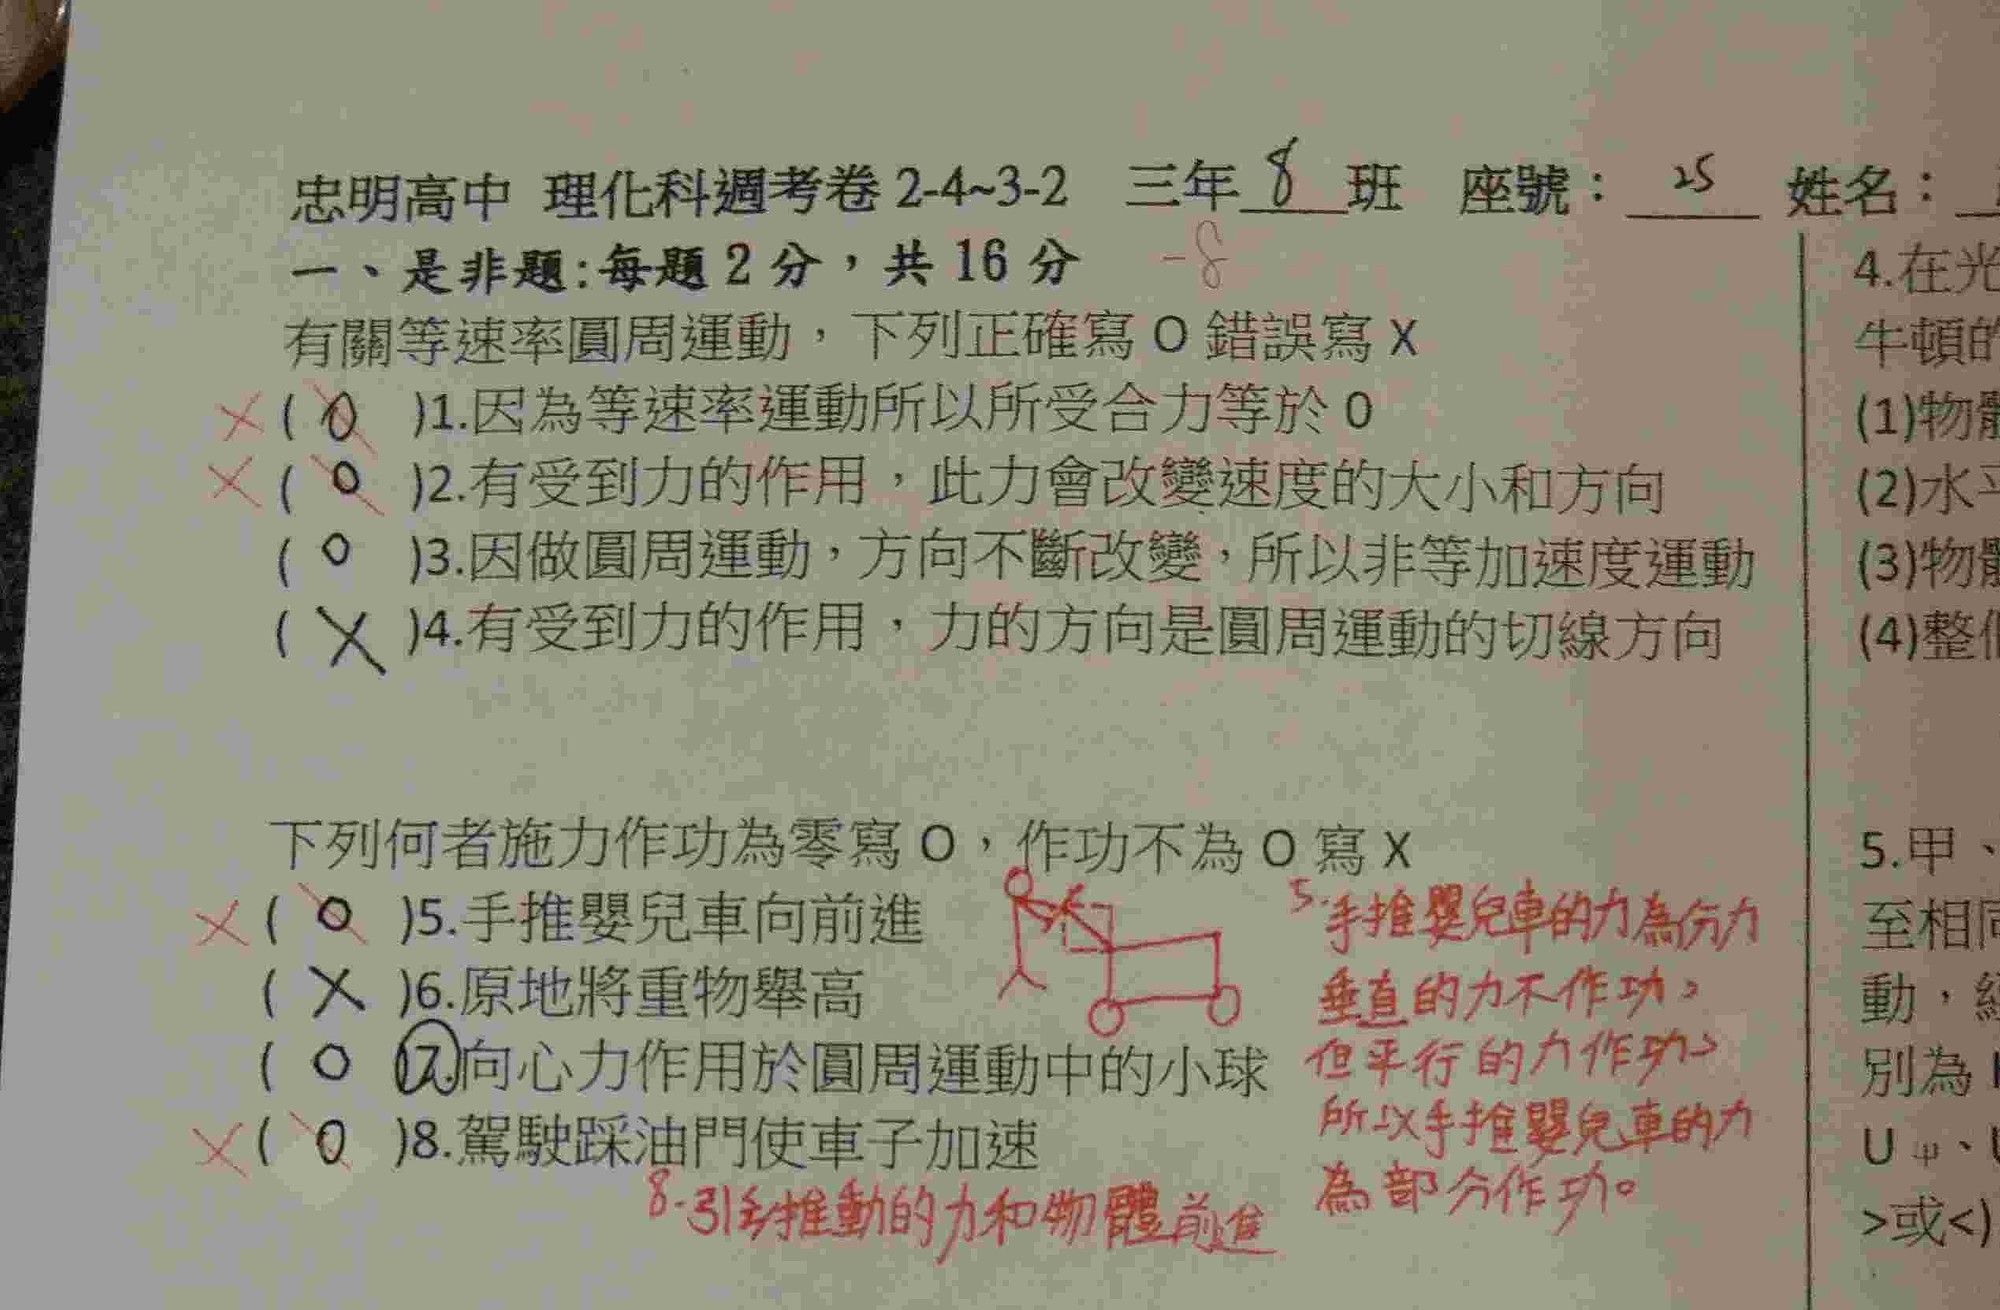 忠明高中 理化科週考卷 2-4~3-2 三年 8 班 座號： 25 姓名：
一、是非題:每題 2 分，共 16 分 -8
有關等速率圓周運動，下列正確寫 O 錯誤寫 X
X ( O )1.因為等速率運動所以所受合力等於 0
X ( O )2.有受到力的作用，此力會改變速度的大小和方向
( O )3.因做圓周運動，方向不斷改變，所以非等加速度運動
( X )4.有受到力的作用，力的方向是圓周運動的切線方向
下列何者施力作功為零寫 O，作功不為 O 寫 X
X ( O )5.手推嬰兒車向前進
( X )6.原地將重物舉高
( O )7.向心力作用於圓周運動中的小球
X ( O )8.駕駛踩油門使車子加速
5.手推嬰兒車的力為分力
垂直的力不作功，
但平行的力作功，
所以手推嬰兒車的力
為部分作功。
8.引擎推動的力和物體前進
4.在光
牛頓的
(1)物體
(2)水平
(3)物體
(4)整個
5.甲、
至相同
動，經
別為
U 甲、U
>或<)